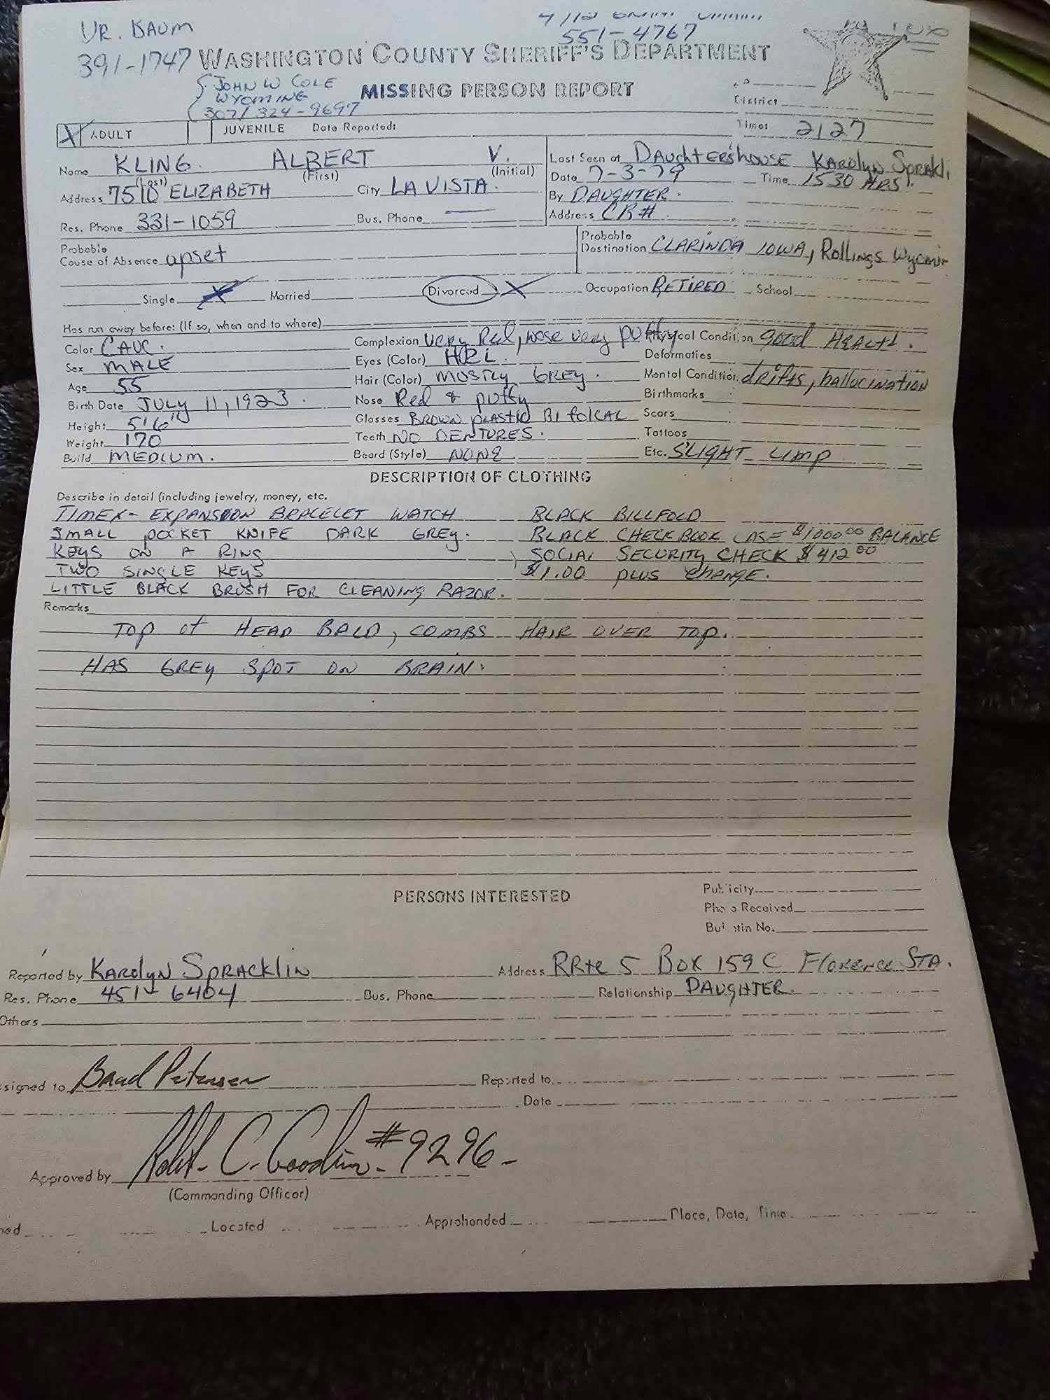 DR. BAUM
551-4767
391-1747 WASHINGTON COUNTY SHERIFF'S DEPARTMENT
JOHN W COLE
WYOMING
307/324-9697
MISSING PERSON REPORT
District
X ADULT JUVENILE Date Reported: Time: 2127
Name KLING ALBERT V.
(Last) (First) (Initial)
Last Seen at DAUGHTERSHOUSE KAROLYN SPRAKL
Date 7-3-79 Time 1530 HRS.
Address 7510 ELIZABETH City LA VISTA.
By DAUGHTER.
Res. Phone 331-1059 Bus. Phone —
Address CR#
Probable
Cause of Absence upset
Probable
Destination CLARINDA IOWA, Rollings
Single X Married Divorced X Occupation RETIRED School
Has run away before: (If so, when and to where)
Color CAUC. Complexion very Red, nose very puffy Physical Condition good HEALTH.
Sex MALE Eyes (Color) HZL. Deformaties
Age 55 Hair (Color) MOSTLY GREY. Mental Condition drifts, hallucination
Birth Date JULY 11, 1923. Nose Red & puffy Birthmarks
Height 5'6" Glasses BROWN plastic BIFOICAL Scars
Weight 170 Teeth NO DENTURES. Tattoos
Build MEDIUM. Beard (Style) NONE Etc. SLIGHT LIMP
DESCRIPTION OF CLOTHING
Describe in detail (including jewelry, money, etc.
TIMEX- EXPANSION BRACELET WATCH BLACK BILLFOLD
SMALL POCKET KNIFE DARK GREY. BLACK CHECKBOOK CASE $1000.00 BALANCE
KEYS ON A RING SOCIAL SECURITY CHECK $412.00
TWO SINGLE KEYS $1.00 plus change.
LITTLE BLACK BRUSH FOR CLEANING RAZOR.
Remarks
TOP OF HEAD BALD, COMBS HAIR OVER TOP.
HAS GREY SPOT ON BRAIN.
PERSONS INTERESTED
Publicity
Photo Received
Bulletin No.
Reported by KAROLYN SPRACKLIN Address RRte 5 BOX 159C FLORENCE STA.
Res. Phone 451-6404 Bus. Phone Relationship DAUGHTER.
Others
signed to Brad Petersen Reported to
Date
Approved by Robt. C. #9296-
(Commanding Officer)
Located Apprehended Place, Date, Time